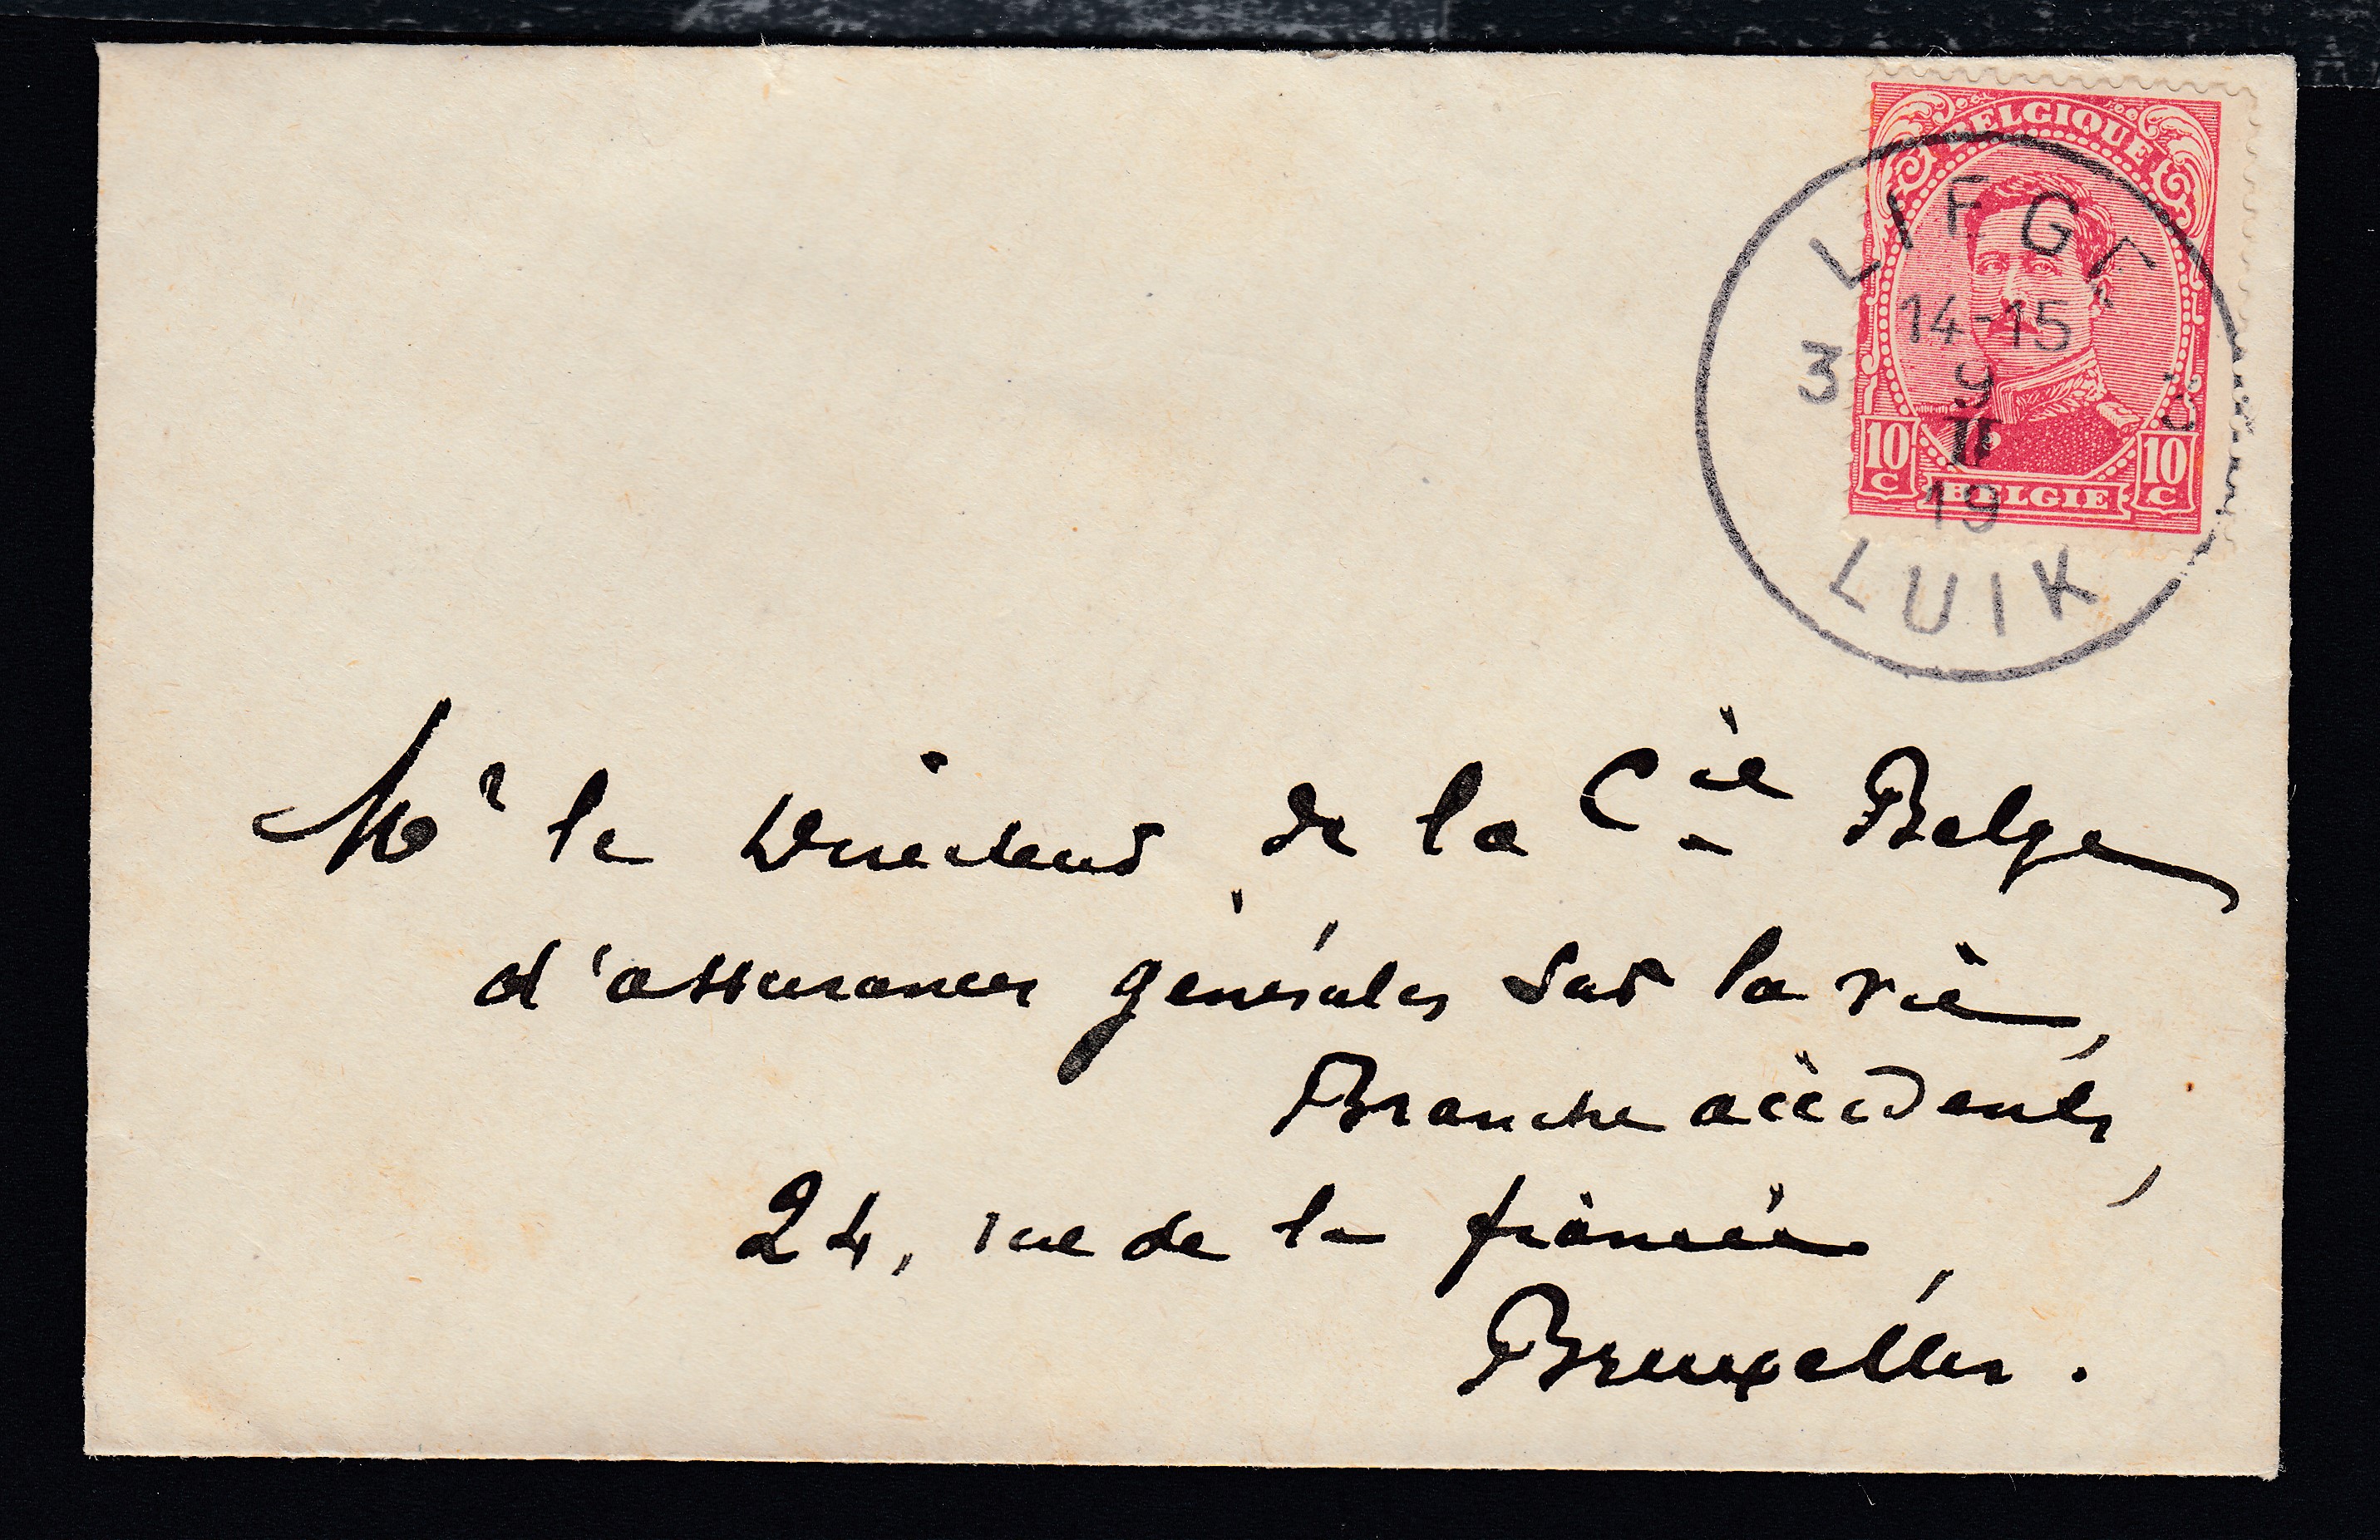 BELGIQUE
LIEGE
14-15
3 3
9
II
19
10 C 10 C
BELGIE
LUIK
Mr le Directeur de la Cie Belge
d'assurances générales sur la vie,
Branche accidents,
24, rue de la fiancée,
Bruxelles.